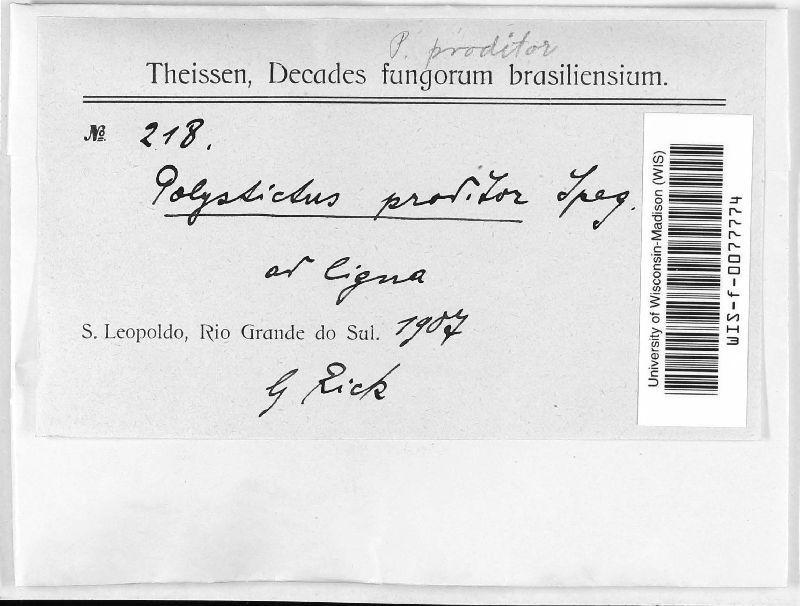 P. proditor
Theissen, Decades fungorum brasiliensium.
№ 218.
Polystictus proditor Speg.
ad ligna
S. Leopoldo, Rio Grande do Sul. 1907
Rick
University of Wisconsin-Madison (WIS)
WIS-f-0077774